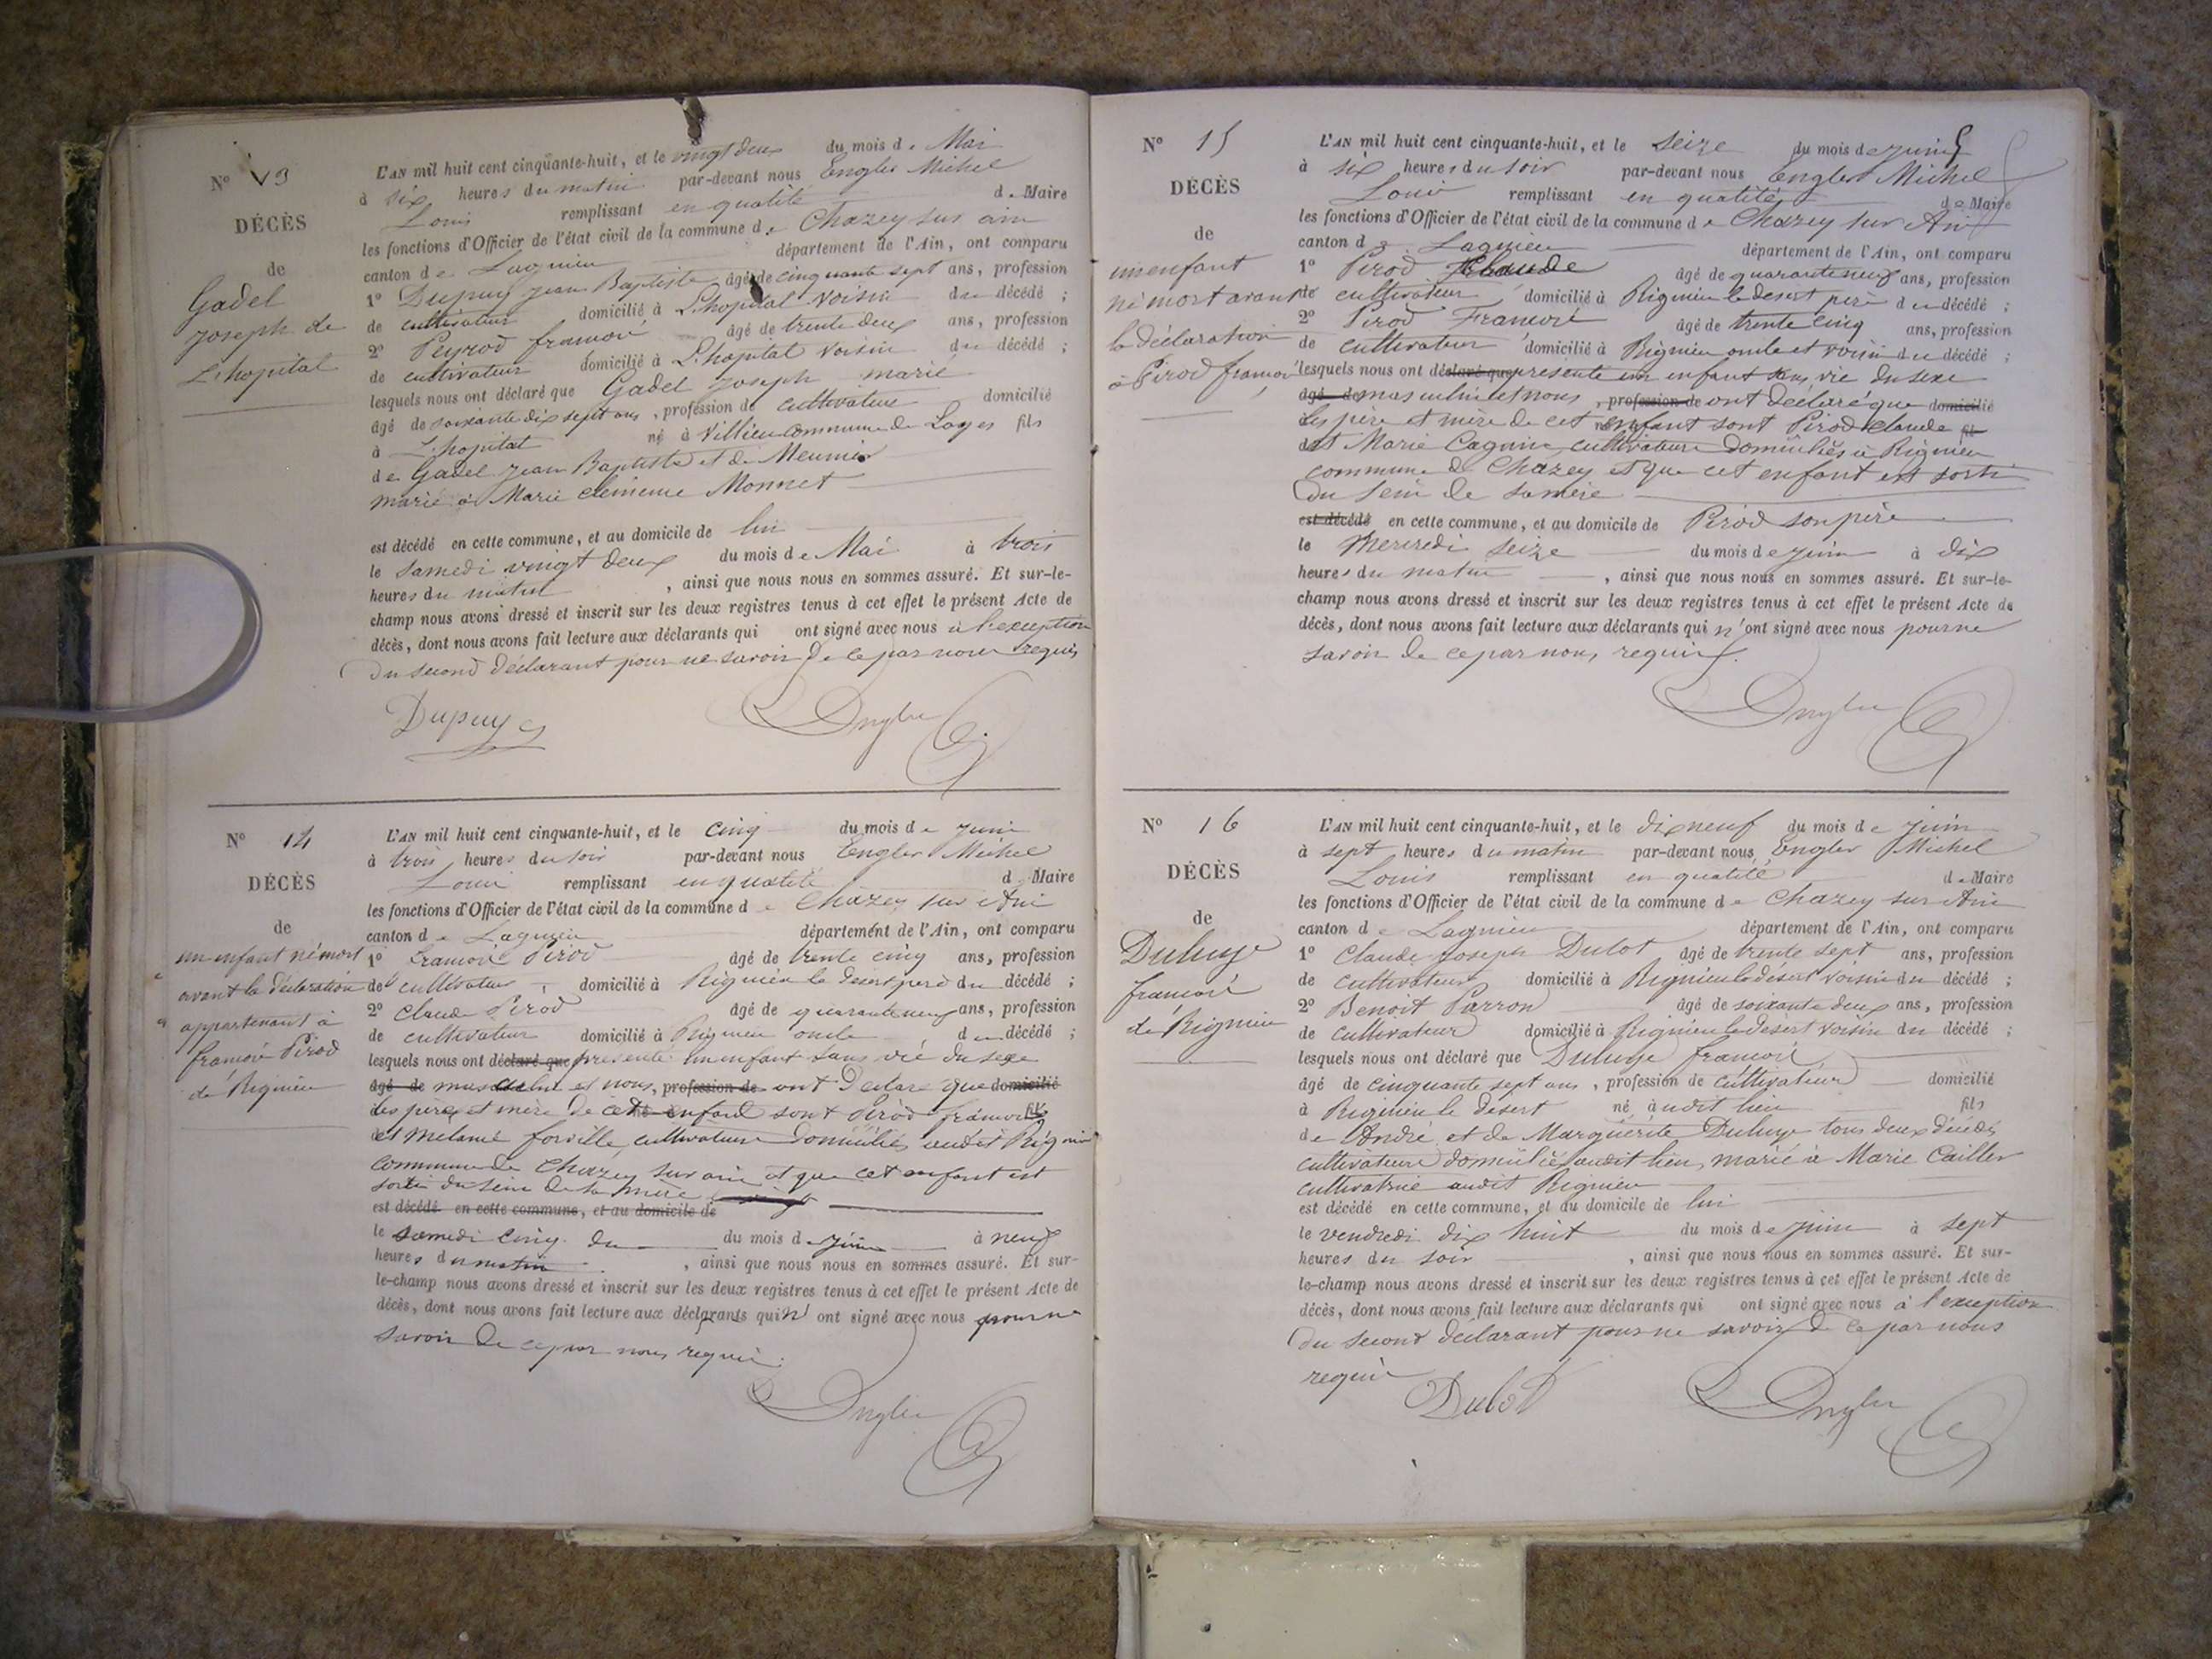 N° 13
DÉCÈS
de
Gadel
Joseph de
L'hopital
L'AN mil huit cent cinquante-huit, et le vingt deux du mois de Mai
à six heures du matin par-devant nous Engler Michel
Louis remplissant en qualité de Maire
les fonctions d'Officier de l'état civil de la commune de Chazey sur ain
canton de Lagnieu département de l'Ain, ont comparu
1° Dupuy jean Baptiste âgé de cinquante sept ans, profession
de cultivateur domicilié à L'hopital voisin du décédé ;
2° Peyrod francois âgé de trente deux ans, profession
de cultivateur domicilié à L'hopital voisin du décédé ;
lesquels nous ont déclaré que Gadel joseph marié
âgé de soixante dix sept ans, profession de cultivateur domicilié
à L'hopital né à Villieu commune de Loyes fils
de Gadel jean Baptiste et de Meunier
marié à Marie clémence Monnet
est décédé en cette commune, et au domicile de lui
le samedi vingt deux du mois de Mai à trois
heures du matin, ainsi que nous nous en sommes assuré. Et sur-le-
champ nous avons dressé et inscrit sur les deux registres tenus à cet effet le présent Acte de
décès, dont nous avons fait lecture aux déclarants qui ont signé avec nous à l'exception
du second déclarant pour ne savoir de ce par nous requis
Dupuy Engler
N° 14
DÉCÈS
de
un enfant né mort
avant la déclaration
appartenant à
francois Pérod
de Rignieu
L'AN mil huit cent cinquante-huit, et le cinq du mois de juin
à trois heures du soir par-devant nous Engler Michel
Louis remplissant en qualité de Maire
les fonctions d'Officier de l'état civil de la commune de Chazey sur Ain
canton de Lagnieu département de l'Ain, ont comparu
1° francois Pérod âgé de trente cinq ans, profession
de cultivateur domicilié à Rignieu le desert père du décédé ;
2° Claude Pérod âgé de quarante neuf ans, profession
de cultivateur domicilié à Rignieu oncle du décédé ;
lesquels nous ont déclaré que présenté un enfant sans vie du sexe
âgé de masculin et nous, profession de ont déclaré que domicilié
les père et mère de cet enfant sont Pérod francois fils
et Mélanie forville cultivateurs domiciliés audit Rignieu
commune de Chazey sur ain et que cet enfant est
sorti du sein de sa mère
est décédé en cette commune, et au domicile de
le samedi cinq du du mois de juin à neuf
heures du matin, ainsi que nous nous en sommes assuré. Et sur-
le-champ nous avons dressé et inscrit sur les deux registres tenus à cet effet le présent Acte de
décès, dont nous avons fait lecture aux déclarants qui n'ont signé avec nous pour ne
savoir de ce par nous requis.
Engler
N° 15
DÉCÈS
de
un enfant
né mort avant
la déclaration
à Pirod francois
L'AN mil huit cent cinquante-huit, et le seize du mois de juin
à six heures du soir par-devant nous Engler Michel
Louis remplissant en qualité de Maire
les fonctions d'Officier de l'état civil de la commune de Chazey sur Ain
canton de Lagnieu département de l'Ain, ont comparu
1° Pirod Claude âgé de quarante neuf ans, profession
de cultivateur domicilié à Rignieu le desert père du décédé ;
2° Pirod Francois âgé de trente cinq ans, profession
de cultivateur domicilié à Rignieu oncle et voisin du décédé ;
lesquels nous ont déclaré que présenté un enfant sans vie du sexe
âgé de masculin et nous, profession de ont déclaré que domicilié
les père et mère de cet enfant sont Pirod Claude
et Marie Cagnin cultivateurs domiciliés à Rignieu
commune de Chazey et que cet enfant est sorti
du sein de sa mère
est décédé en cette commune, et au domicile de Pérod son père
le Mercredi seize du mois de juin à dix
heures du matin, ainsi que nous nous en sommes assuré. Et sur-le-
champ nous avons dressé et inscrit sur les deux registres tenus à cet effet le présent Acte de
décès, dont nous avons fait lecture aux déclarants qui n'ont signé avec nous pour ne
savoir de ce par nous requis.
Engler
N° 16
DÉCÈS
de
Duluye
francois
de Rignieu
L'AN mil huit cent cinquante-huit, et le dix neuf du mois de juin
à sept heures du matin par-devant nous Engler Michel
Louis remplissant en qualité de Maire
les fonctions d'Officier de l'état civil de la commune de Chazey sur Ain
canton de Lagnieu département de l'Ain, ont comparu
1° Claude Joseph Dubot âgé de trente sept ans, profession
de cultivateur domicilié à Rignieu le désert voisin du décédé ;
2° Benoit Parron âgé de soixante deux ans, profession
de cultivateur domicilié à Rignieu le désert voisin du décédé ;
lesquels nous ont déclaré que Duluye francois
âgé de cinquante sept ans, profession de cultivateur domicilié
à Rignieu le désert né audit lieu fils
de André et de Marguerite Duluye tous deux décédés
cultivateurs domiciliés audit lieu, marié à Marie Cailler
cultivatrice audit Rignieu
est décédé en cette commune, et au domicile de lui
le vendredi dix huit du mois de juin à sept
heures du soir, ainsi que nous nous en sommes assuré. Et sur-
le-champ nous avons dressé et inscrit sur les deux registres tenus à cet effet le présent Acte de
décès, dont nous avons fait lecture aux déclarants qui ont signé avec nous à l'exception
du second déclarant pour ne savoir de ce par nous
requis
Dubot Engler